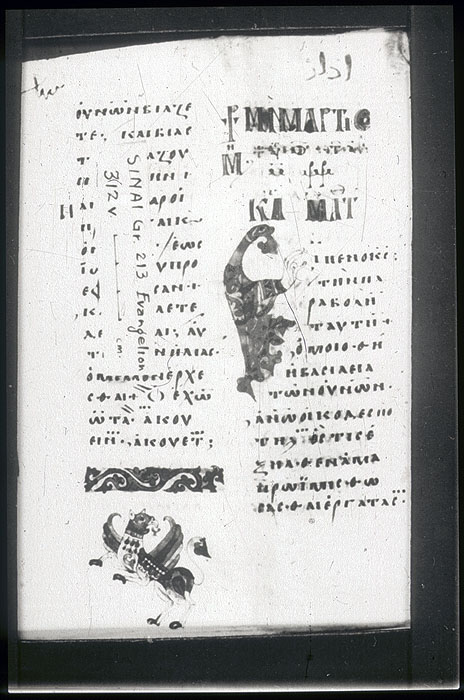 ΟΥΝΩΝΒΙΑΖΕ
ΤΕ· ΚΑΙΒΙΑΣ
Τ ΑΖΟΥ
ΗΝ·
ΑΡΟΙ
ΕΩΣ
ΥΠΡΟ
ΣΑΝ+
ΛΕΤΕ
ΑΙ; ΑΥ
ΝΗΛΙΑΣ·
ΟΜΕΛΛΟΝΕΡΧΕ
ΣΘΑΙ+ Ο ΕΧΩ
ΩΤΑ· ΑΚΟΥ
ΕΙΝ· ΑΚΟΥΕΤ;
SINAI Gr. 213 Evangelion
312v
cm.
ΜΗΝΙΜΑΡΤΙΩ
ΚΑ ΜΑΤ
ΙΠΕΝΟΚΣ;
ΤΗΝΠΑ
ΡΑΒΟΛΗ
ΤΑΥΤΗ+
ΟΜΟΙΟΘΗ
ΗΒΑΣΙΛΕΙΑ
ΤΩΝΟΥΝΩΝ·
ΑΝΩΟΙΚΟΔΕΣΠΟ
ΤΗ ΟΣΤΙΣΕ
ΞΗΛΘΕΝΑΜΑ
ΠΡΩΙΜΙΣΘΩ
ΣΑΣΘΑΙΕΡΓΑΤΑΣ